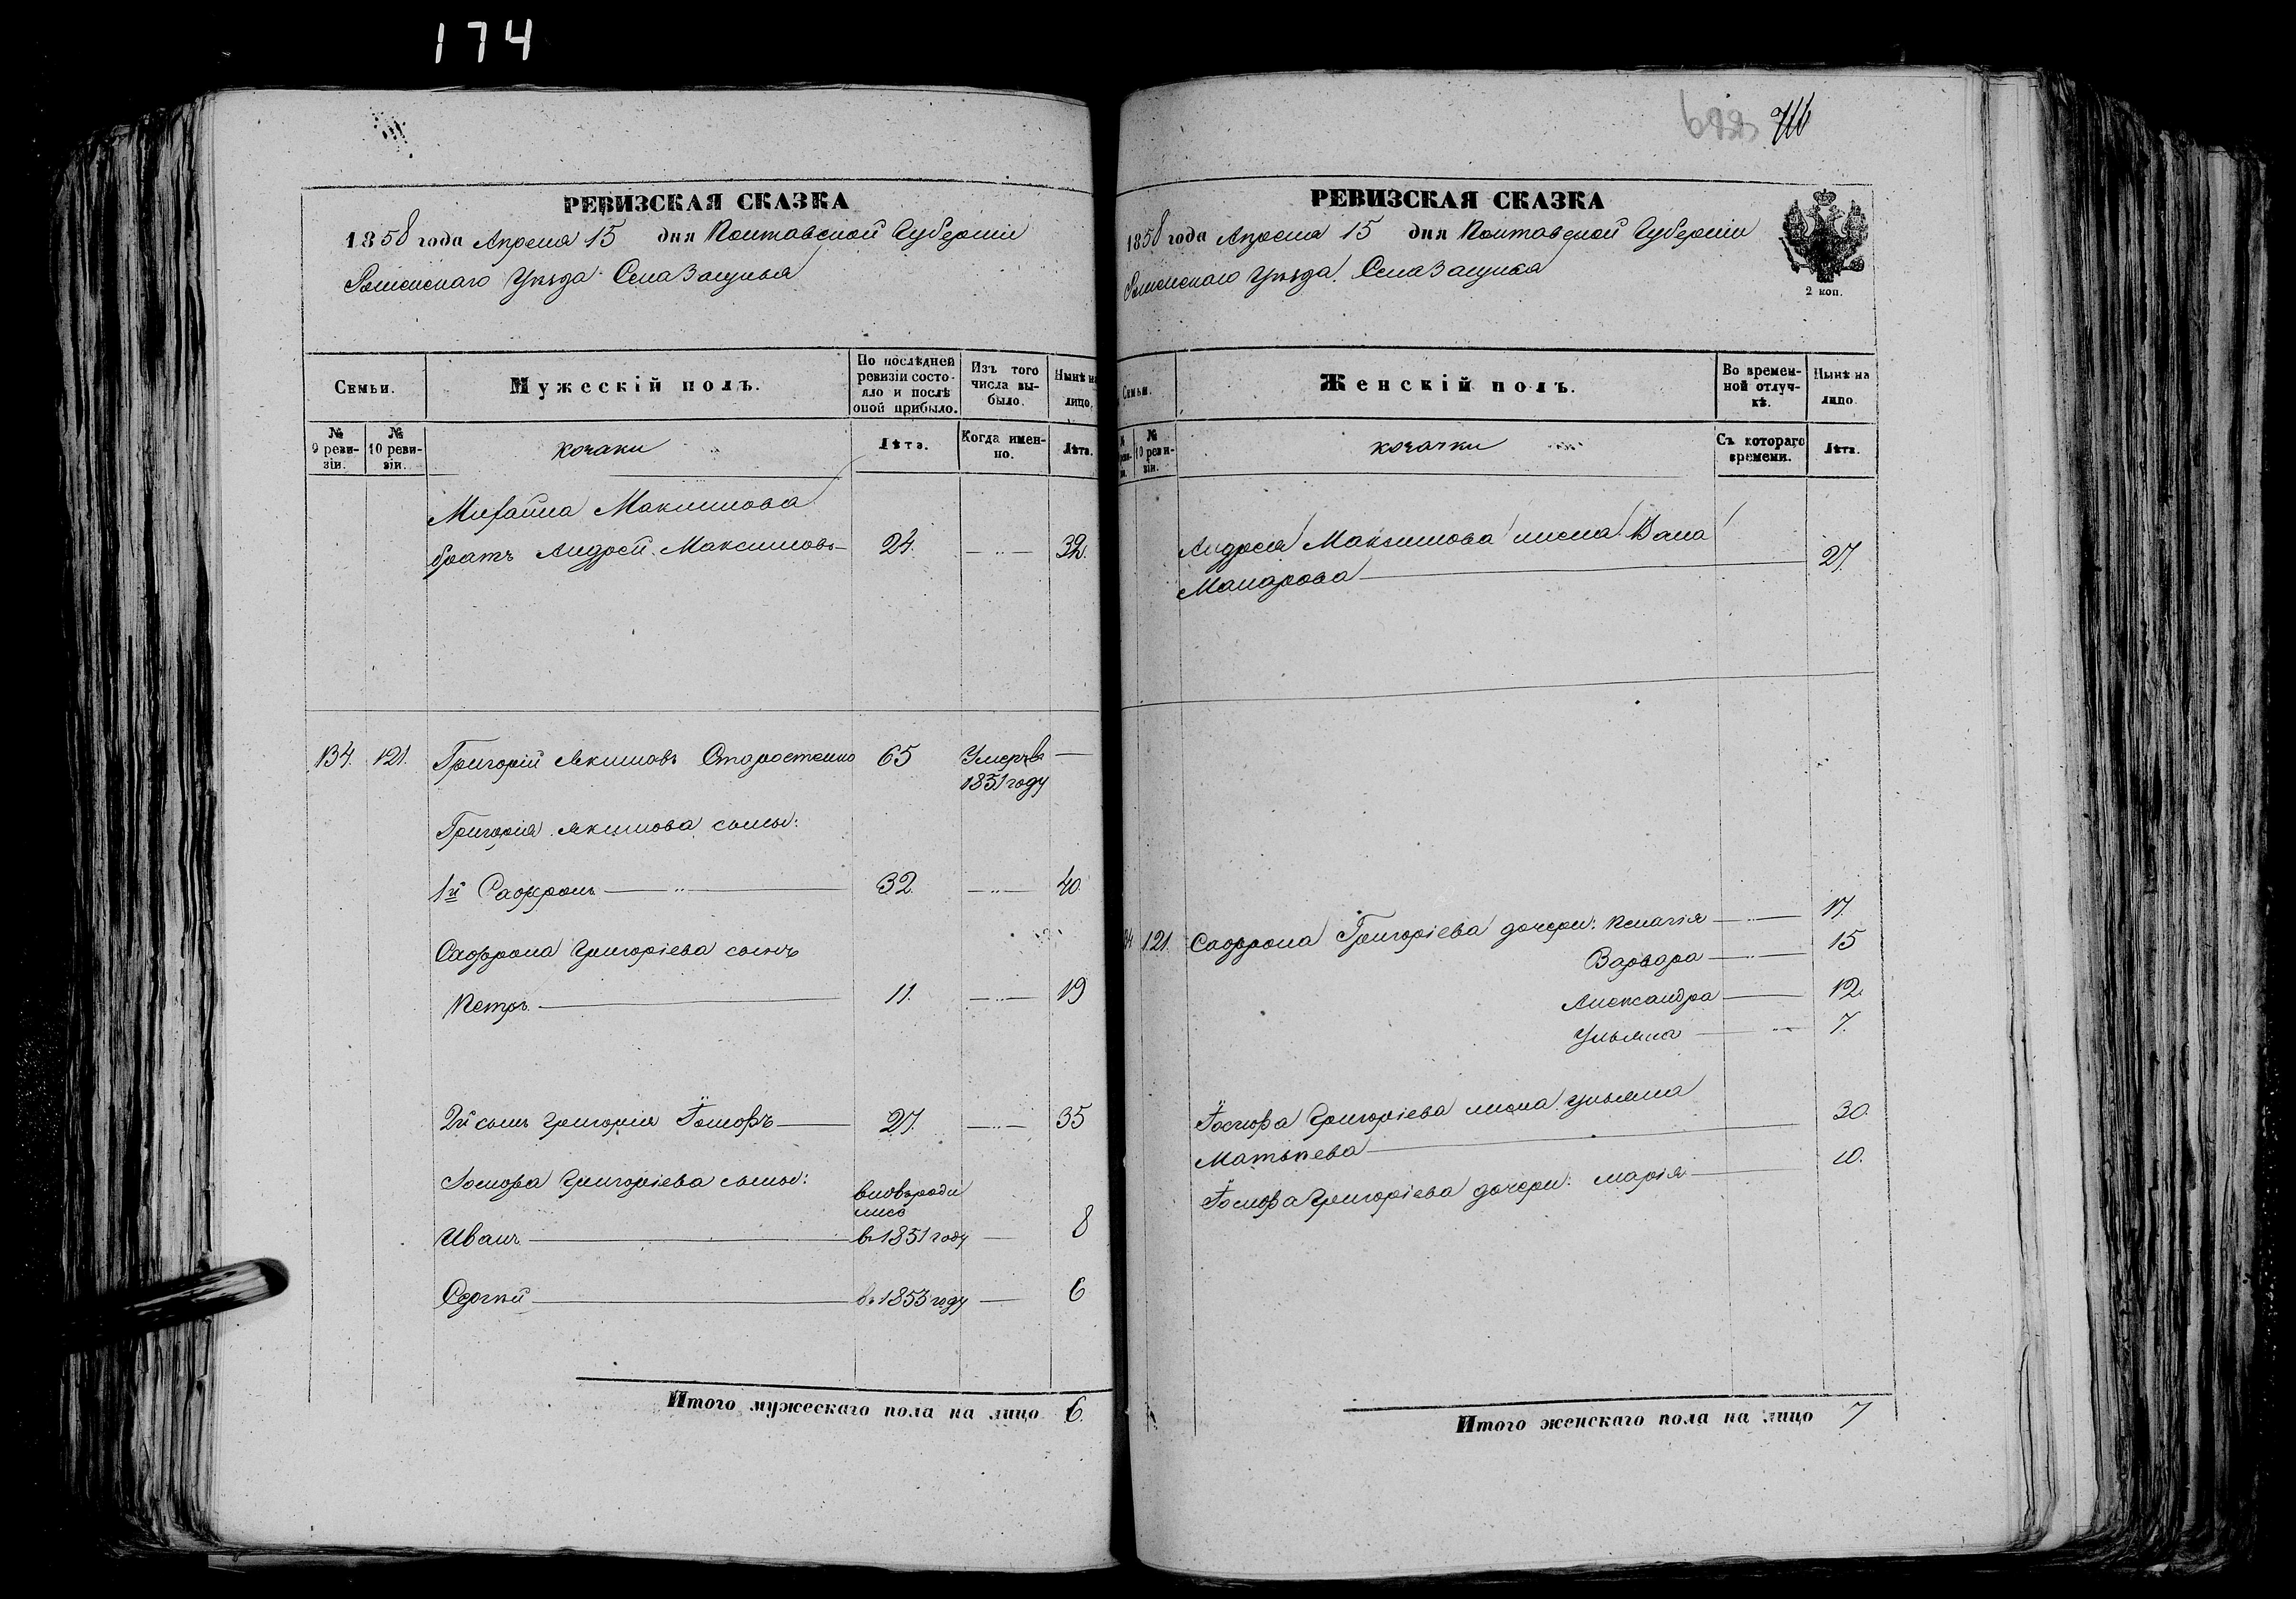 174
716
РЕВИЗСКАЯ СКАЗКА
1858 года Апреля 15 дня Полтавской Губерніи
Роменскаго Уѣзда Села Засулья
Семьи.
Мужескій полъ.
По послѣдней ревизіи состояло и послѣ оной прибыло.
Изъ того числа выбыло.
Нынѣ на лицо.
№ 9 ревизіи.
№ 10 ревизіи.
козаки
Лѣта.
Когда именно.
Лѣта.
Михайла Максимова
братъ Андрей Максимовъ 24. 32.
134. 121. Григорій Якимовъ Старостенко 65 Умеръ въ
1851 году
Григорія Якимова сыны:
1й Сафронъ 32. 40.
Сафрона Григоріева сынъ
Петръ 11. 19
2й сынъ Григорія Іосифъ 27. 35
Іосифа Григоріева сыны:
вновьроди
лись
Иванъ в 1851 году 8
в 1853 году 6
Итого мужескаго пола на лицо 6.
РЕВИЗСКАЯ СКАЗКА
1858 года Апреля 15 дня Полтавской Губерніи
Роменскаго Уѣзда Села Засулья
2 коп.
Семьи.
Женскій полъ.
Во временной отлучкѣ.
Нынѣ на лицо.
№ 10 ревизіи.
козачки
Съ котораго времени.
Лѣта.
Андрея Максимова жена
Макарова 27.
121. Сафрона Григоріева дочери: Пелагія 17.
Варвара 15
Александра 12.
Ульяна 7.
Іосифа Григоріева жена Ульяна
Матвѣева 30.
Іосифа Григоріева дочери: Марія 10.
Итого женскаго пола на лицо 7